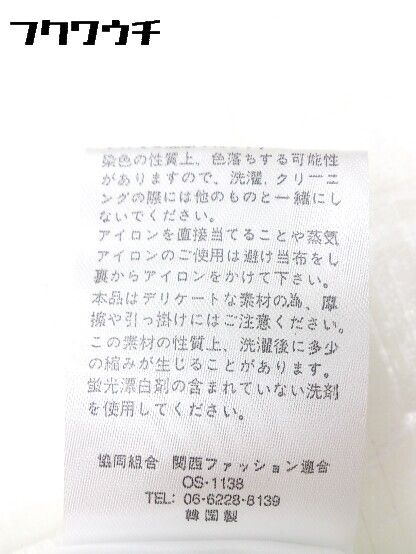 フクワウチ
染色の性質上、色落ちする可能性
がありますので、洗濯、クリーニ
ングの際には他のものと一緒にし
ないでください。
アイロンを直接当てることや蒸気
アイロンのご使用は避け当布をし
裏からアイロンをかけて下さい。
本品はデリケートな素材の為、摩
擦や引っ掛けにはご注意ください。
この素材の性質上、洗濯後に多少
の縮みが生じることがあります。
蛍光漂白剤の含まれていない洗剤
を使用してください。
協同組合 関西ファッション連合
OS-1138
TEL: 06-6228-8139
韓国製